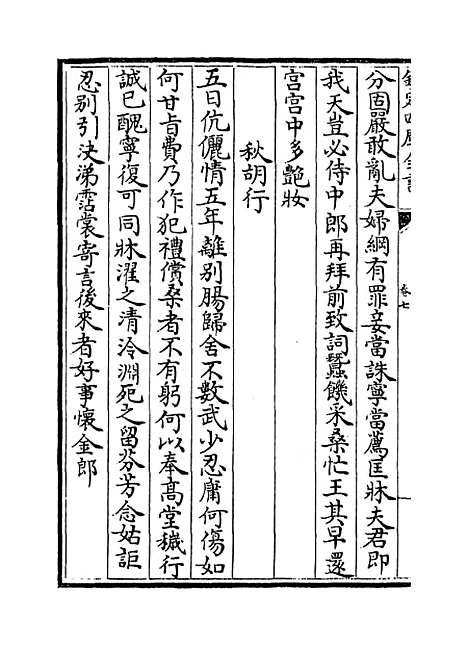 欽定四庫全書
卷七
分固嚴敢亂夫婦綱有罪妾當誅寧當薦匡牀夫君即
我天豈必侍中郎再拜前致詞蠶饑采桑忙王其早還
宮宮中多艷妝
秋胡行
五日伉儷情五年離别腸歸舍不數武少忍庸何傷如
何甘旨費乃作犯禮償桑者不有躬何以奉髙堂穢行
誠已醜寧復可同牀濯之清泠淵死之留芬芳念姑詎
忍别引決涕霑裳寄言後來者好事懷金郎